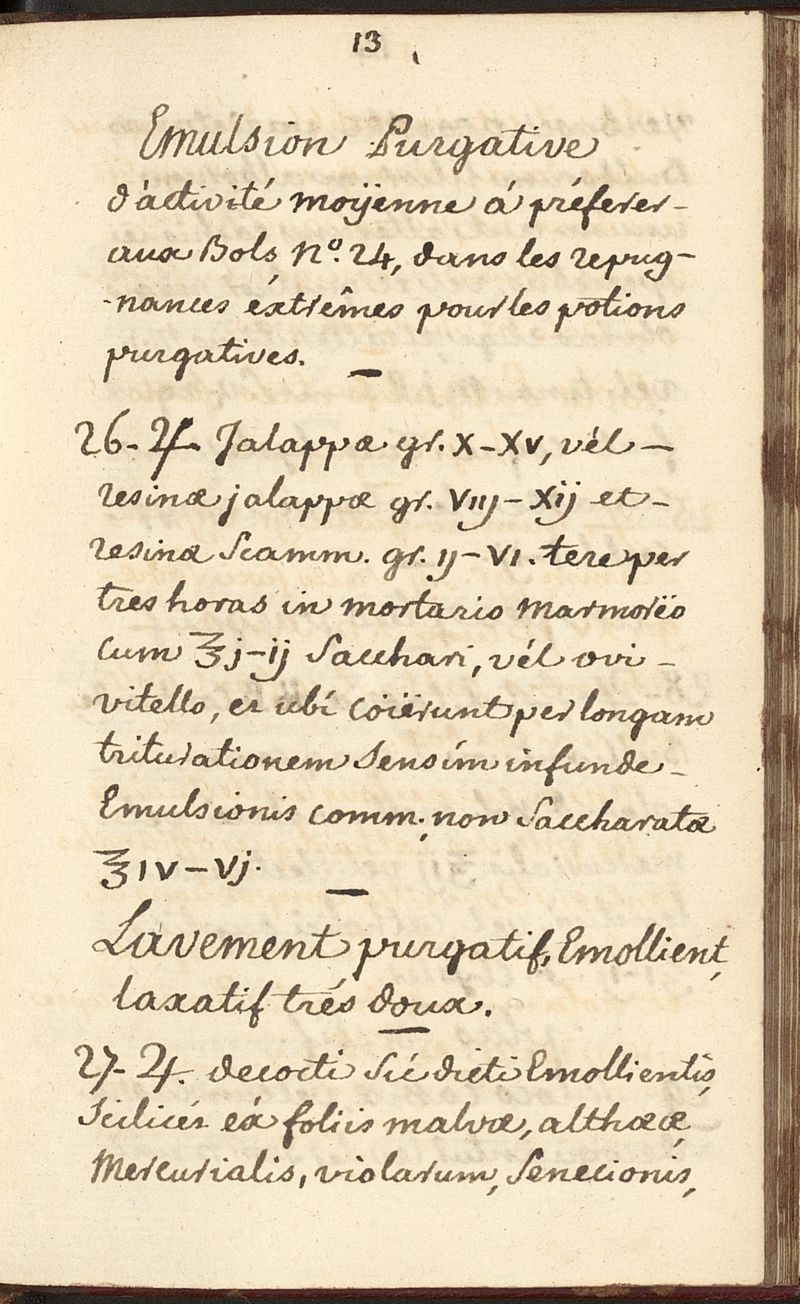 13
Emulsion Purgative
d'activité moÿenne á préferer-
aux Bols Nº. 24, dans les repug-
-nances éxtrêmes pour les potions
purgatives. —
26-♃. Jalappæ gr. X-XV, vél —
resinæ jalappæ gr. VIIJ-Xij et-
resinæ Scamm. gr. IJ-VI. tere per
tres horas in mortario marmorëo
cum ℥j-ij Sacchari, vél ovi-
vitello, et ubí coïërunt per longam
triturationem Sensím infunde-
Emulsionis comm. non Saccharatæ
℥IV-Vj.
Lavement purgatif, Emollient,
laxatif trés doux.
27-♃. decocti Sic dicti Emollientis,
Scilicét éx foliis malvæ, althææ,
Mercurialis, violarum, Senecionis,